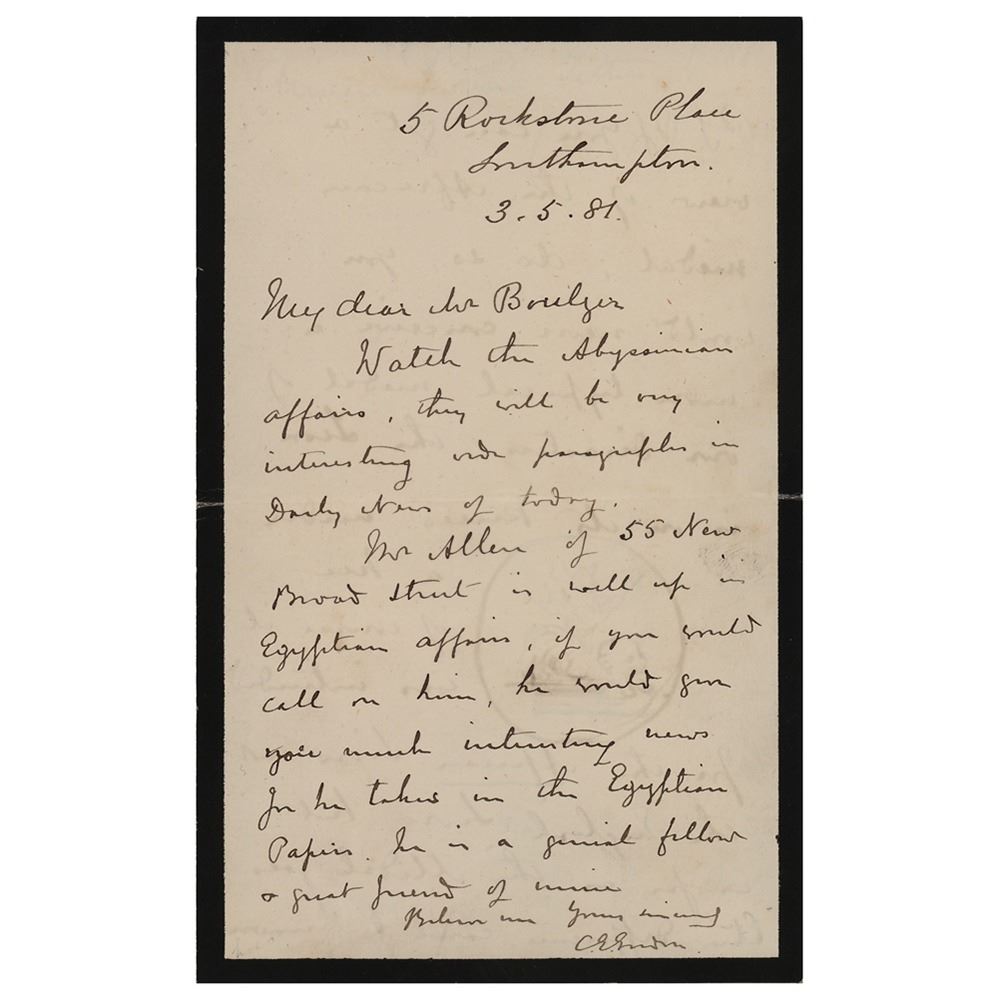 5 Rockstone Place
Southampton.
3.5.81.
My dear Mr Boulger
Watch the Abyssinian
affairs, they will be very
interesting vide paragraphs in
Daily News of today.
Mr Allen of 55 New
Broad Street is well up in
Egyptian affairs, if you would
call on him, he would give
you much interesting news
for he takes in the Egyptian
Papers. he is a genial fellow
& great friend of mine
Believe me Yours sincerely
C.E.Gordon.